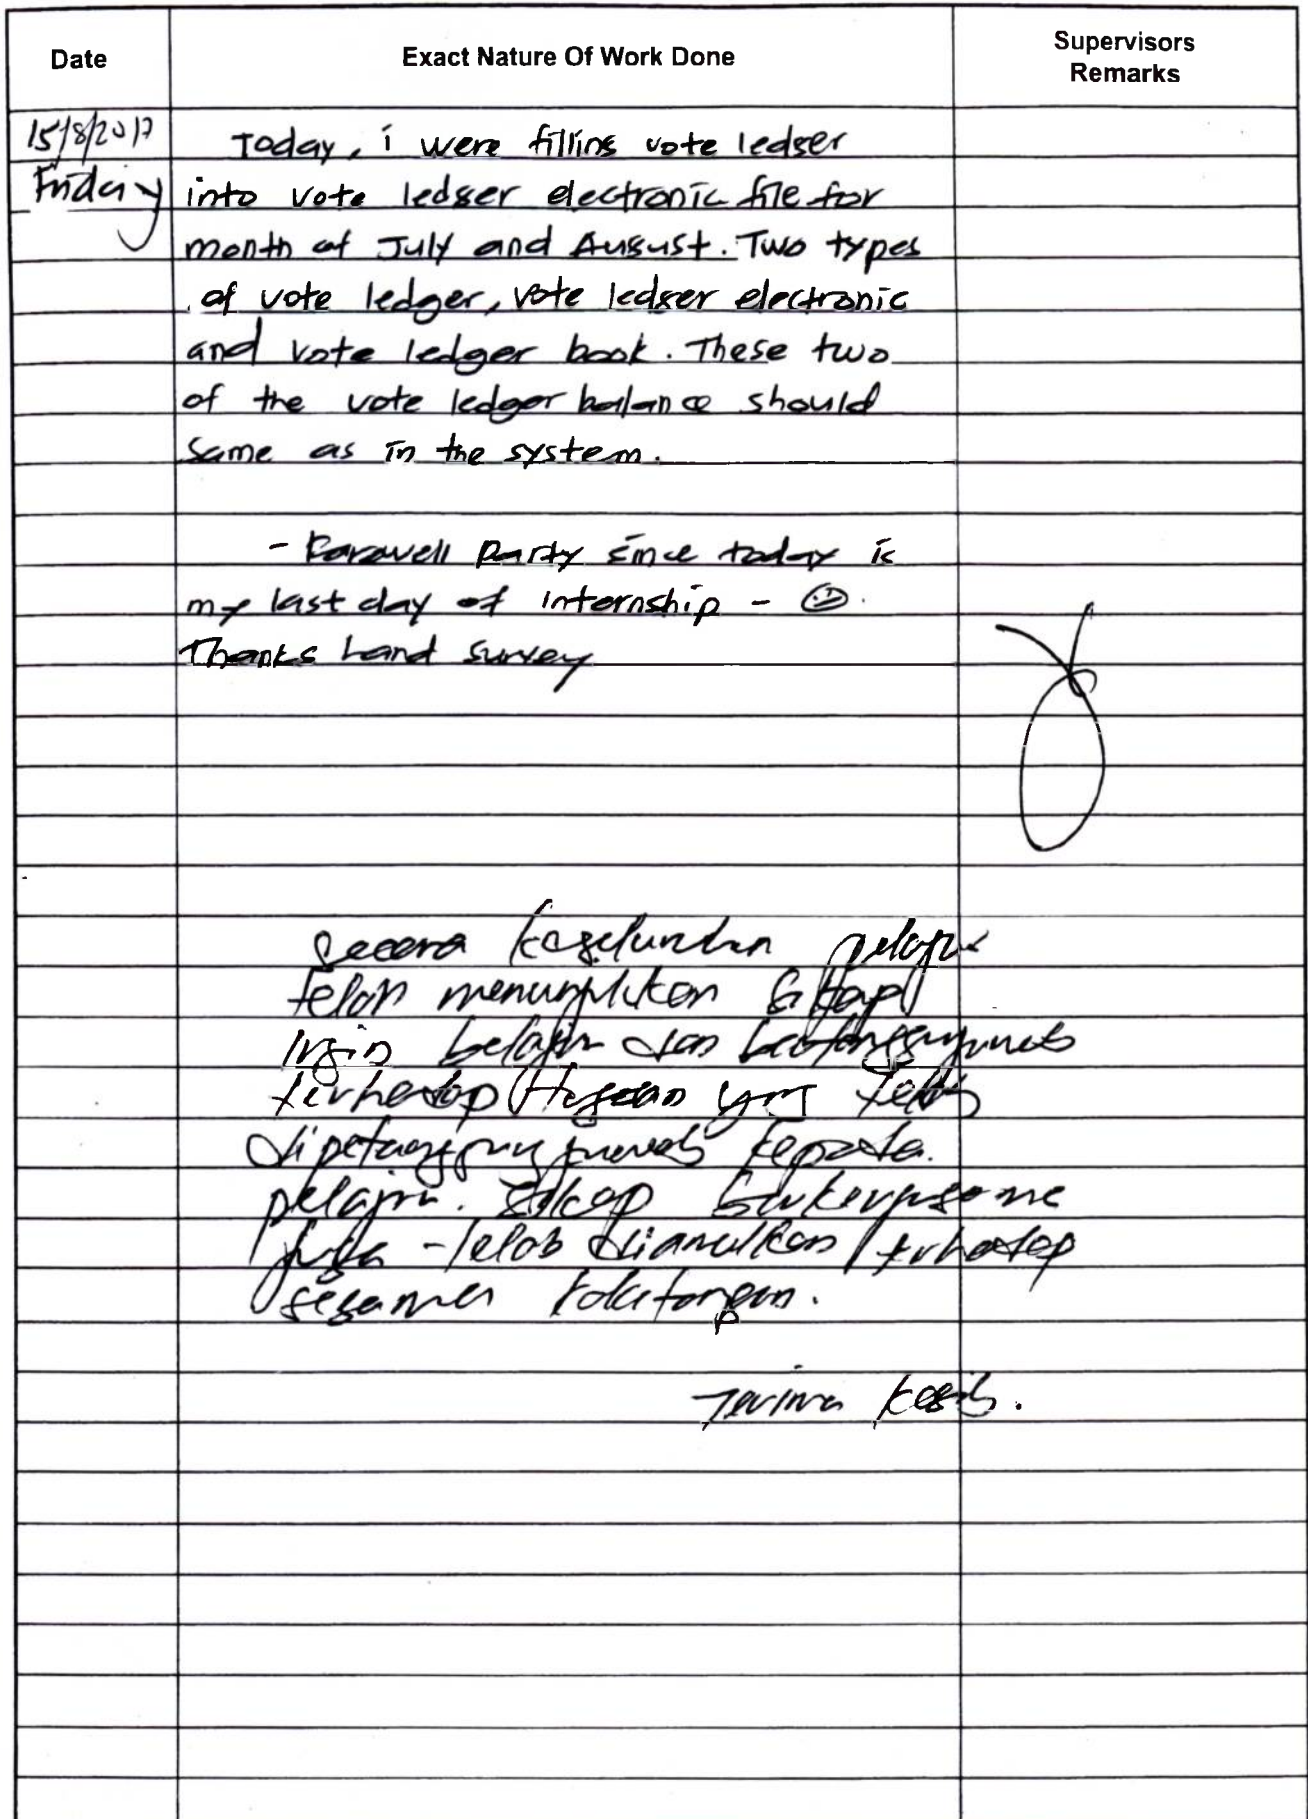 Date
Exact Nature Of Work Done
Supervisors
Remarks
15/8/2017
Friday
Today, i were filling vote ledger
into vote ledger electronic file for
month of July and August. Two types
of vote ledger, vote ledger electronic
and vote ledger book. These two
of the vote ledger balance should
same as in the system.
- Farewell party since today is
my last day of internship - ☺.
Thanks Land Survey
Secara keseluruhan pelajar
telah menunjukkan sikap
ingin belajar dan bertanggungjawab
terhadap tugasan yang telah
dipetanggungjawab kepada
pelajar. Sikap bekerjasama
juga telah diamalkan terhadap
sesama kakitangan.
Terima kasih.